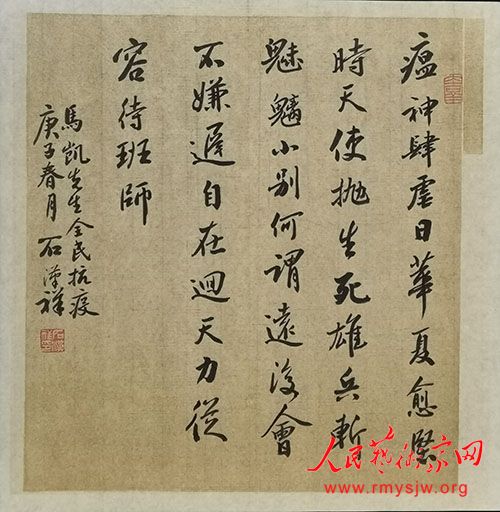 瘟神肆虐日華夏愈堅
時天使抛生死雄兵斬
魅魑小别何謂遠後會
不嫌遲自在迴天力從
容待班師
馬凱先生全民抗疫
庚子春月 石漢祥
人民藝術家网
www.rmysjw.org